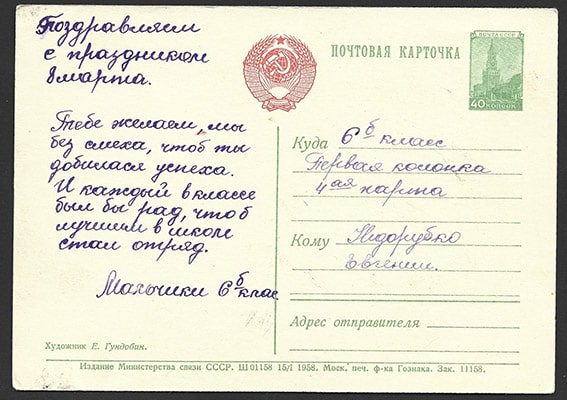 Поздравляем
с праздником
8 марта.
Тебе желаем, мы
без смеха, чтоб ты
добилася успеха.
И каждый в классе
был бы рад, чтоб
лучшим в школе
стал отряд.
Мальчики 6б клас
ПОЧТОВАЯ КАРТОЧКА
ПОЧТА СССР
40 КОПЕЕК
Куда 6б класс
Первая колонка
4ая парта
Кому Недорубко
Евгении.
Адрес отправителя
Художник Е. Гундобин.
Издание Министерства связи СССР. Ш01158 15/I 1958. Моск. печ. ф-ка Гознака. Зак. 11158.